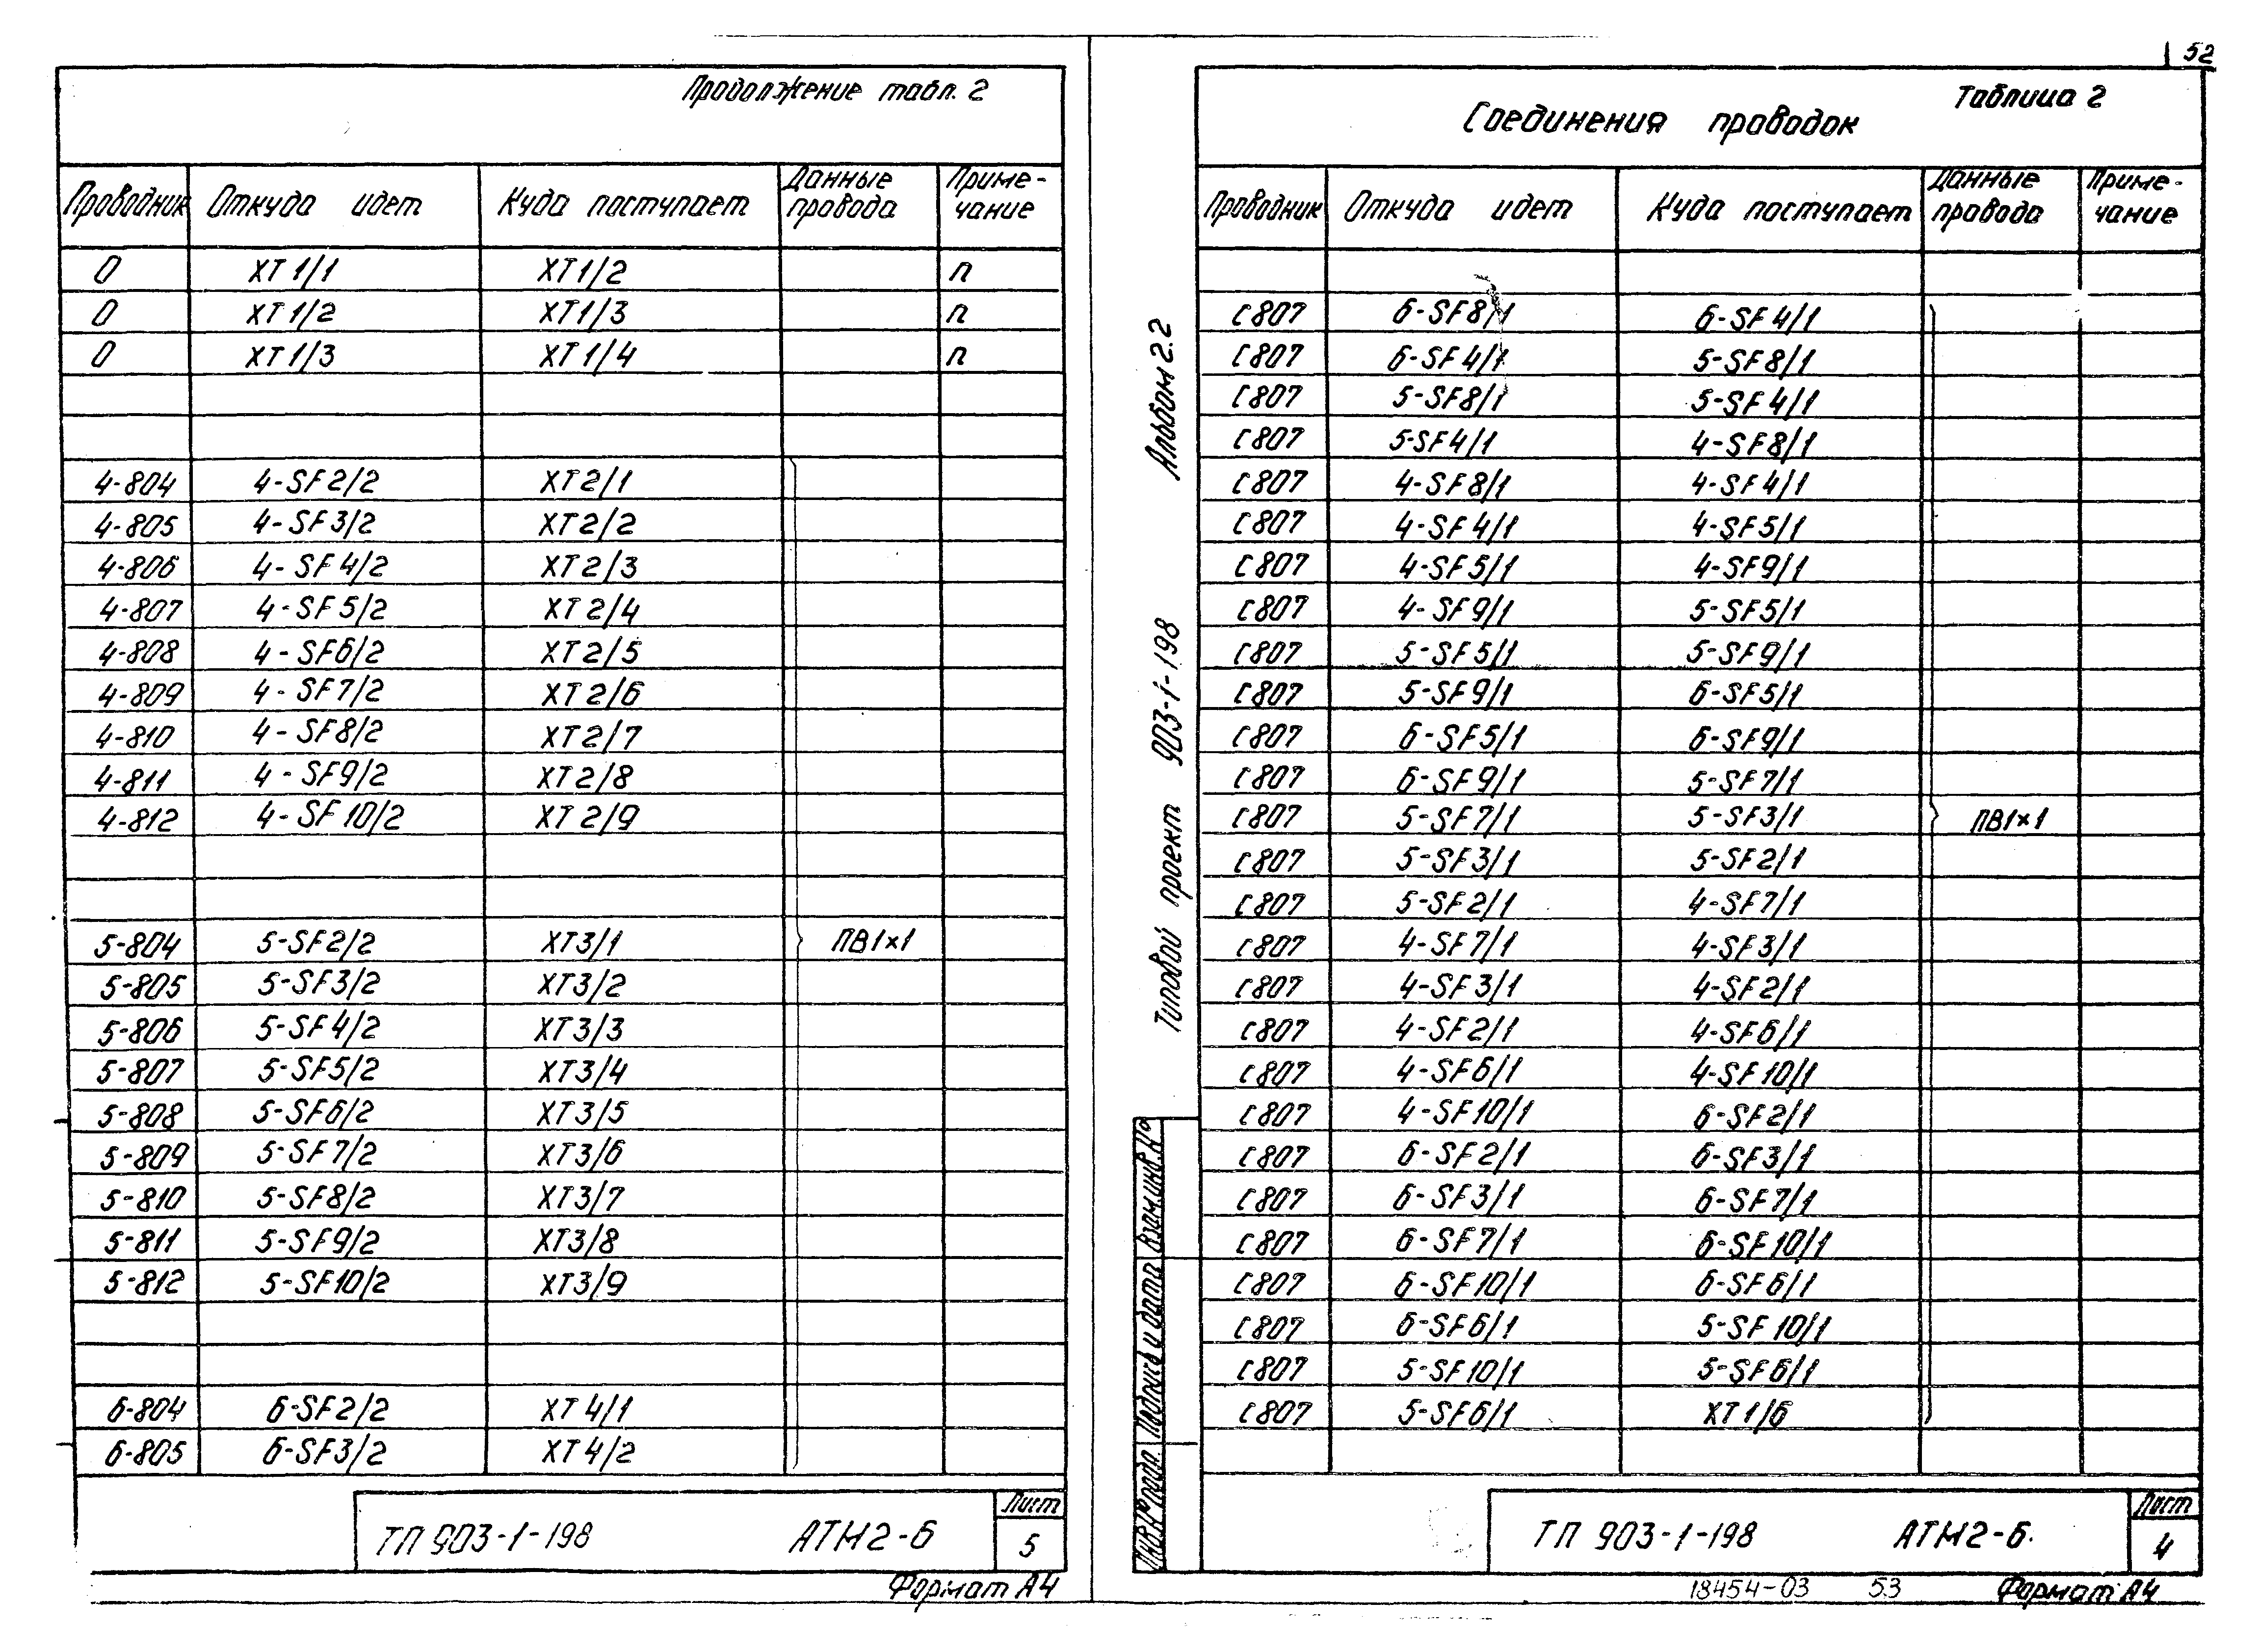 52
Продолжение табл. 2
Проводник Откуда идет Куда поступает Данные провода Приме-чание
0 XT1/1 XT1/2 п
0 XT1/2 XT1/3 п
0 XT1/3 XT1/4 п
4-804 4-SF2/2 XT2/1
4-805 4-SF3/2 XT2/2
4-806 4-SF4/2 XT2/3
4-807 4-SF5/2 XT2/4
4-808 4-SF6/2 XT2/5
4-809 4-SF7/2 XT2/6
4-810 4-SF8/2 XT2/7
4-811 4-SF9/2 XT2/8
4-812 4-SF10/2 XT2/9
5-804 5-SF2/2 XT3/1 ПВ1×1
5-805 5-SF3/2 XT3/2
5-806 5-SF4/2 XT3/3
5-807 5-SF5/2 XT3/4
5-808 5-SF6/2 XT3/5
5-809 5-SF7/2 XT3/6
5-810 5-SF8/2 XT3/7
5-811 5-SF9/2 XT3/8
5-812 5-SF10/2 XT3/9
6-804 6-SF2/2 XT4/1
6-805 6-SF3/2 XT4/2
ТП 903-1-198 АТМ2-6 Лист 5
Формат А4
Таблица 2
Соединения проводок
Проводник Откуда идет Куда поступает Данные провода Приме-чание
С807 6-SF8/1 6-SF4/1
С807 6-SF4/1 5-SF8/1
С807 5-SF8/1 5-SF4/1
С807 5-SF4/1 4-SF8/1
С807 4-SF8/1 4-SF4/1
С807 4-SF4/1 4-SF5/1
С807 4-SF5/1 4-SF9/1
С807 4-SF9/1 5-SF5/1
С807 5-SF5/1 5-SF9/1
С807 5-SF9/1 6-SF5/1
С807 6-SF5/1 6-SF9/1
С807 6-SF9/1 5-SF7/1
С807 5-SF7/1 5-SF3/1 ПВ1×1
С807 5-SF3/1 5-SF2/1
С807 5-SF2/1 4-SF7/1
С807 4-SF7/1 4-SF3/1
С807 4-SF3/1 4-SF2/1
С807 4-SF2/1 4-SF6/1
С807 4-SF6/1 4-SF10/1
С807 4-SF10/1 6-SF2/1
С807 6-SF2/1 6-SF3/1
С807 6-SF3/1 6-SF7/1
С807 6-SF7/1 6-SF10/1
С807 6-SF10/1 6-SF6/1
С807 6-SF6/1 5-SF10/1
С807 5-SF10/1 5-SF6/1
С807 5-SF6/1 XT1/6
Типовой проект 903-1-198 Альбом 2.2
Инв.№ подл. Подпись и дата Взам.инв.№
ТП 903-1-198 АТМ2-6. Лист 4
18454-03 53 Формат А4